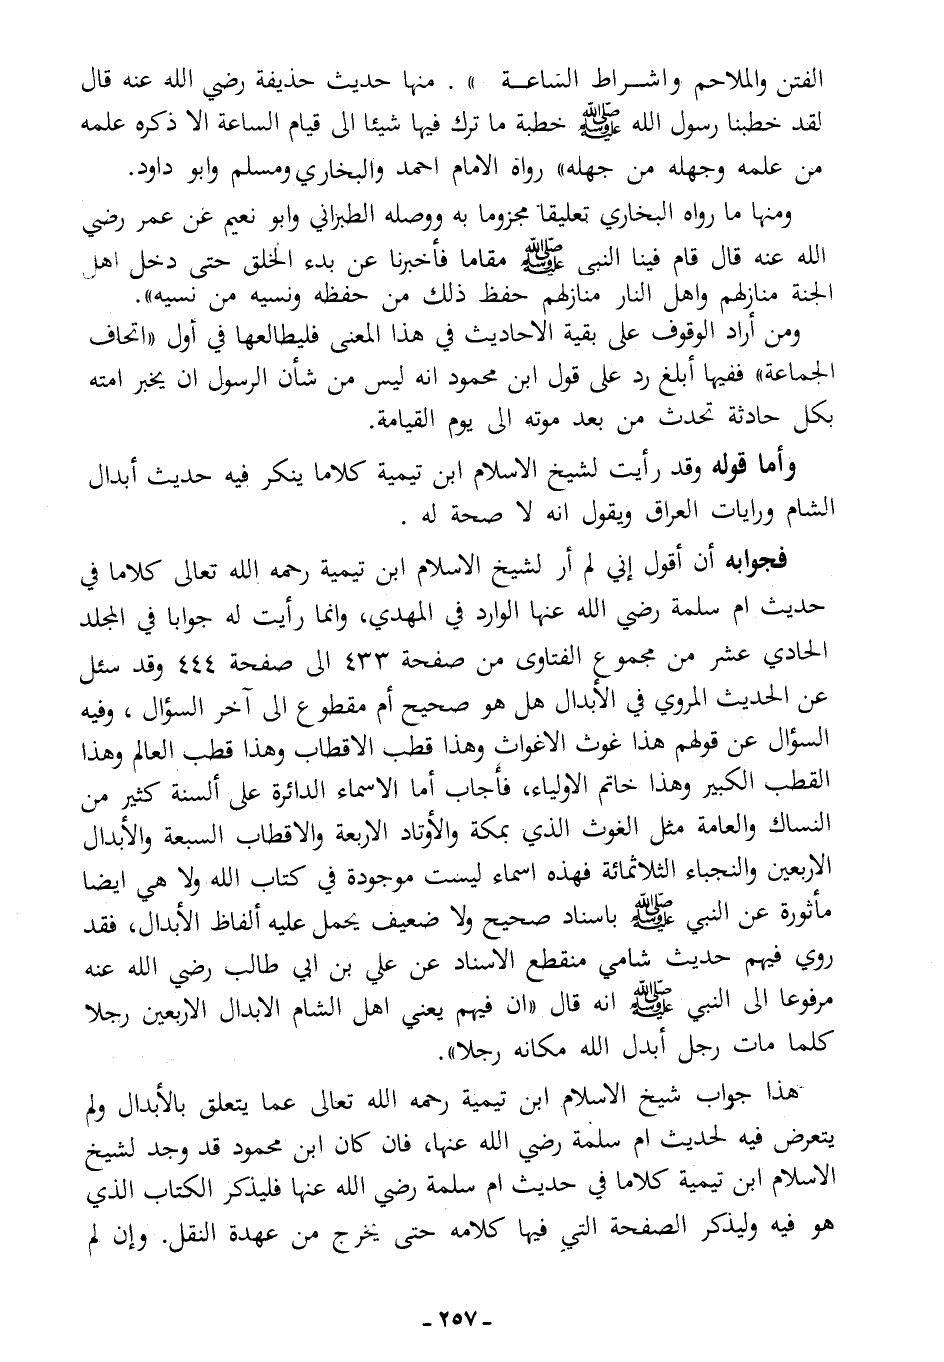 الفتن والملاحم واشـراط الساعـة » . منها حديث حذيفة رضي الله عنه قال
لقد خطبنا رسول الله ﷺ خطبة ما ترك فيها شيئا الى قيام الساعة الا ذكره علمه
من علمه وجهله من جهله» رواه الامام احمد والبخاري ومسلم وابو داود.
ومنها ما رواه البخاري تعليقا مجزوما به ووصله الطبراني وابو نعيم عن عمر رضي
الله عنه قال قام فينا النبى ﷺ مقاما فأخبرنا عن بدء الخلق حتى دخل اهل
الجنة منازلهم واهل النار منازلهم حفظ ذلك من حفظه ونسيه من نسيه».
ومن أراد الوقوف على بقية الاحاديث في هذا المعنى فليطالعها في أول «اتحاف
الجماعة» ففيها أبلغ رد على قول ابن محمود انه ليس من شأن الرسول ان يخبر امته
بكل حادثة تحدث من بعد موته الى يوم القيامة.
وأما قوله وقد رأيت لشيخ الاسلام ابن تيمية كلاما ينكر فيه حديث أبدال
الشام ورايات العراق ويقول انه لا صحة له .
فجوابه أن أقول إني لم أر لشيخ الاسلام ابن تيمية رحمه الله تعالى كلاما في
حديث ام سلمة رضي الله عنها الوارد في المهدي، وانما رأيت له جوابا في المجلد
الحادي عشر من مجموع الفتاوى من صفحة ٤٣٣ الى صفحة ٤٤٤ وقد سئل
عن الحديث المروي في الأبدال هل هو صحيح أم مقطوع الى آخر السؤال ، وفيه
السؤال عن قولهم هذا غوث الاغواث وهذا قطب الاقطاب وهذا قطب العالم وهذا
القطب الكبير وهذا خاتم الاولياء، فأجاب أما الاسماء الدائرة على ألسنة كثير من
النساك والعامة مثل الغوث الذي بمكة والأوتاد الاربعة والاقطاب السبعة والأبدال
الاربعين والنجباء الثلاثمائة فهذه اسماء ليست موجودة في كتاب الله ولا هي ايضا
مأثورة عن النبي ﷺ باسناد صحيح ولا ضعيف يحمل عليه ألفاظ الأبدال، فقد
روي فيهم حديث شامي منقطع الاسناد عن علي بن ابي طالب رضي الله عنه
مرفوعا الى النبي ﷺ انه قال «ان فيهم يعني اهل الشام الابدال الاربعين رجلا
كلما مات رجل أبدل الله مكانه رجلا».
هذا جواب شيخ الاسلام ابن تيمية رحمه الله تعالى عما يتعلق بالأبدال ولم
يتعرض فيه لحديث ام سلمة رضي الله عنها، فان كان ابن محمود قد وجد لشيخ
الاسلام ابن تيمية كلاما في حديث ام سلمة رضي الله عنها فليذكر الكتاب الذي
هو فيه وليذكر الصفحة التي فيها كلامه حتى يخرج من عهدة النقل. وإن لم
ـ ٢٥٧ ـ